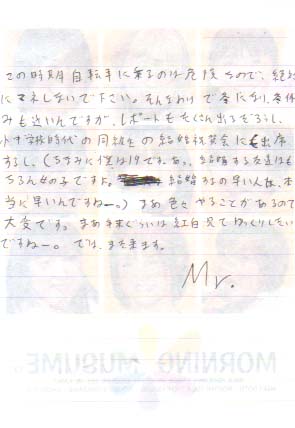 この時期自転車に乗るのは危険なので、絶対
にマネしないで下さい。そんなわけで冬になり、冬休
みも近いんですが、レポートもたくさん出るだろうし、
小学校時代の同級生の結婚祝賀会にも出席
するし、(ちなみに僕は19である。結婚する友達はも
ちろん女の子です。結婚するの早い人は、本
当に早いんですねー。)まあ色々やることがあるので
大変です。まあ年末ぐらいは紅白見てゆっくりしたい
ですねー。では、また来ます。
Mr.
MORNING MUSUME。